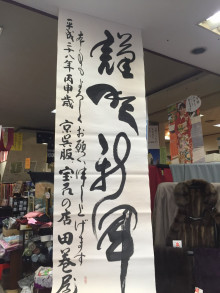 謹賀新年
本年もよろしくお願い申し上げます
平成二十八年丙申歳 京呉服 宝石の店 田巻屋